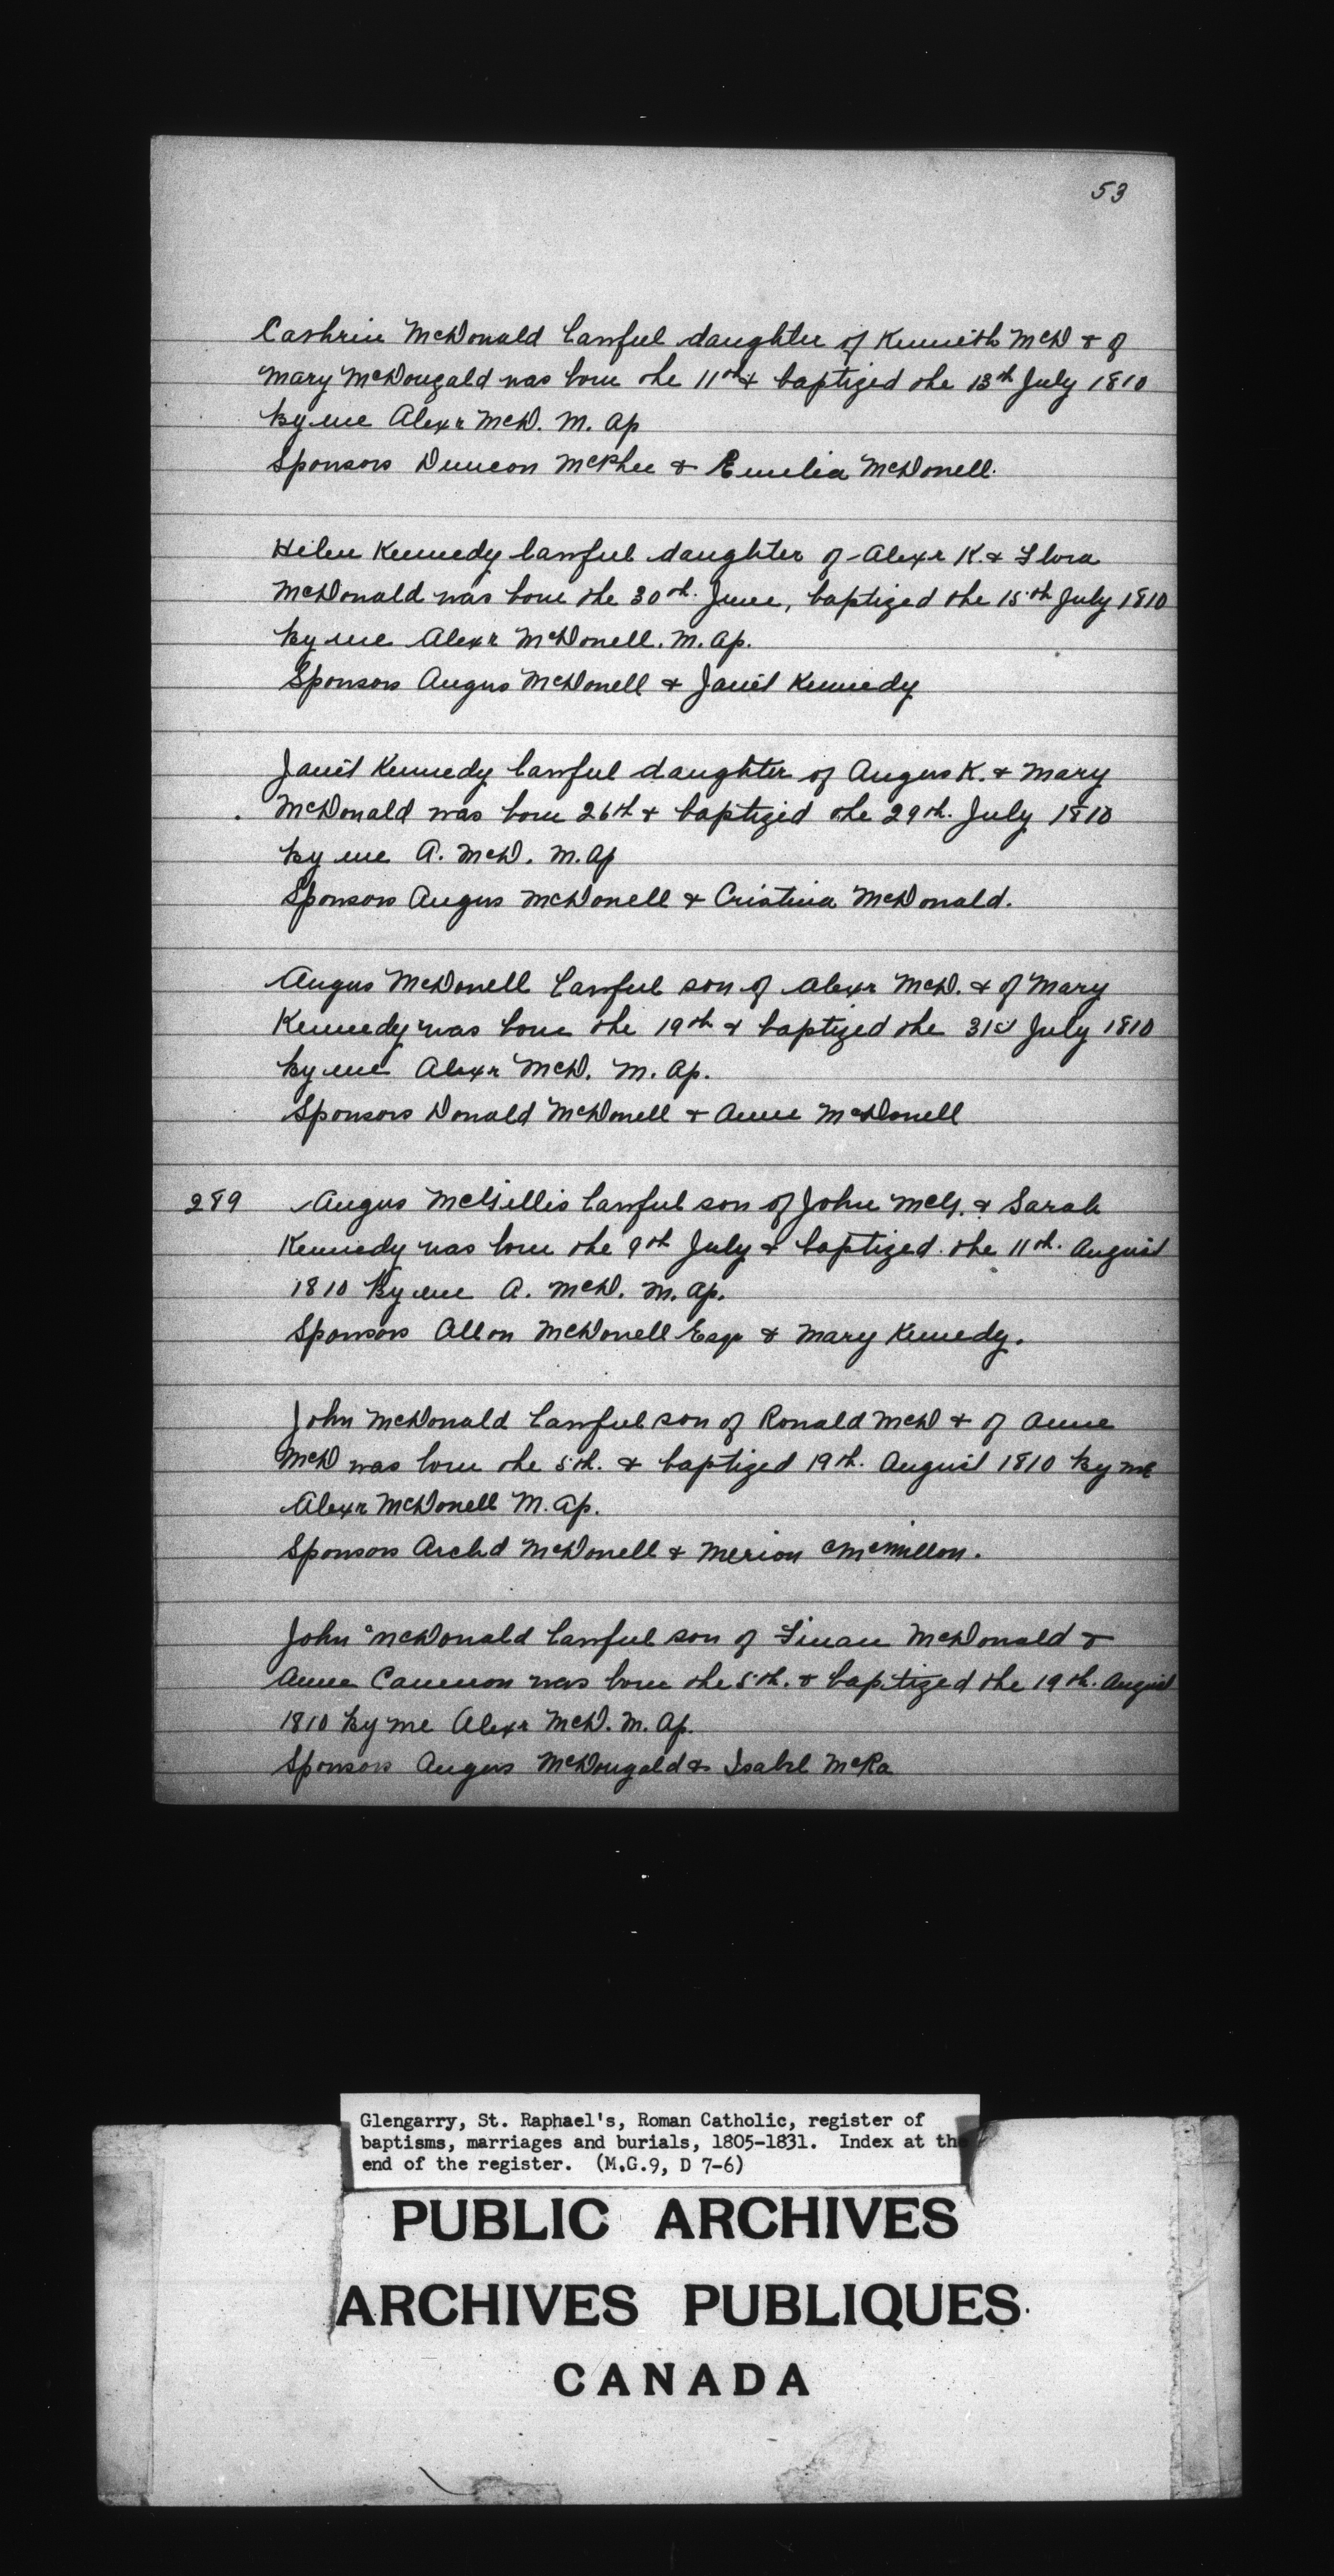 53
Cathrin McDonald lawful daughter of Kenneth McD & of
Mary McDougald was born the 11th & baptized the 13th July 1810
by me Alexr McD. M. Ap
Sponsors Duncan McPhee & Emelia McDonell.
Helen Kennedy lawful daughter of Alexr K. & Flora
McDonald was born the 30th. June, baptized the 15th July 1810
by me Alexr McDonell. M. Ap.
Sponsors Angus McDonell & Janet Kennedy
Janet Kennedy lawful daughter of Angus K. & Mary
McDonald was born 26th & baptized the 29th. July 1810
by me A. McD. M. Ap
Sponsors Angus McDonell & Cristina McDonald.
Angus McDonell lawful son of Alexr McD. & of Mary
Kennedy was born the 19th & baptized the 31st July 1810
by me Alexr McD. M. Ap.
Sponsors Donald McDonell & Anne McDonell
289 Angus McGillis lawful son of John McG. & Sarah
Kennedy was born the 9th July & baptized the 11th. August
1810 by me A. McD. M. Ap.
Sponsors Allan McDonell Esqr & Mary Kennedy.
John McDonald lawful son of Ronald McD & of Anne
McD was born the 5th. & baptized 19th. August 1810 by me
Alexr McDonell M. Ap.
Sponsors Archd McDonell & Merion McMillon.
John McDonald lawful son of Finan McDonald &
Anne Cameron was born the 5th. & baptized the 19th. August
1810 by me Alexr McD. M. Ap.
Sponsors Angus McDougald & Isabel McRa
Glengarry, St. Raphael's, Roman Catholic, register of
baptisms, marriages and burials, 1805-1831. Index at the
end of the register. (M.G.9, D 7-6)
PUBLIC ARCHIVES
ARCHIVES PUBLIQUES
CANADA